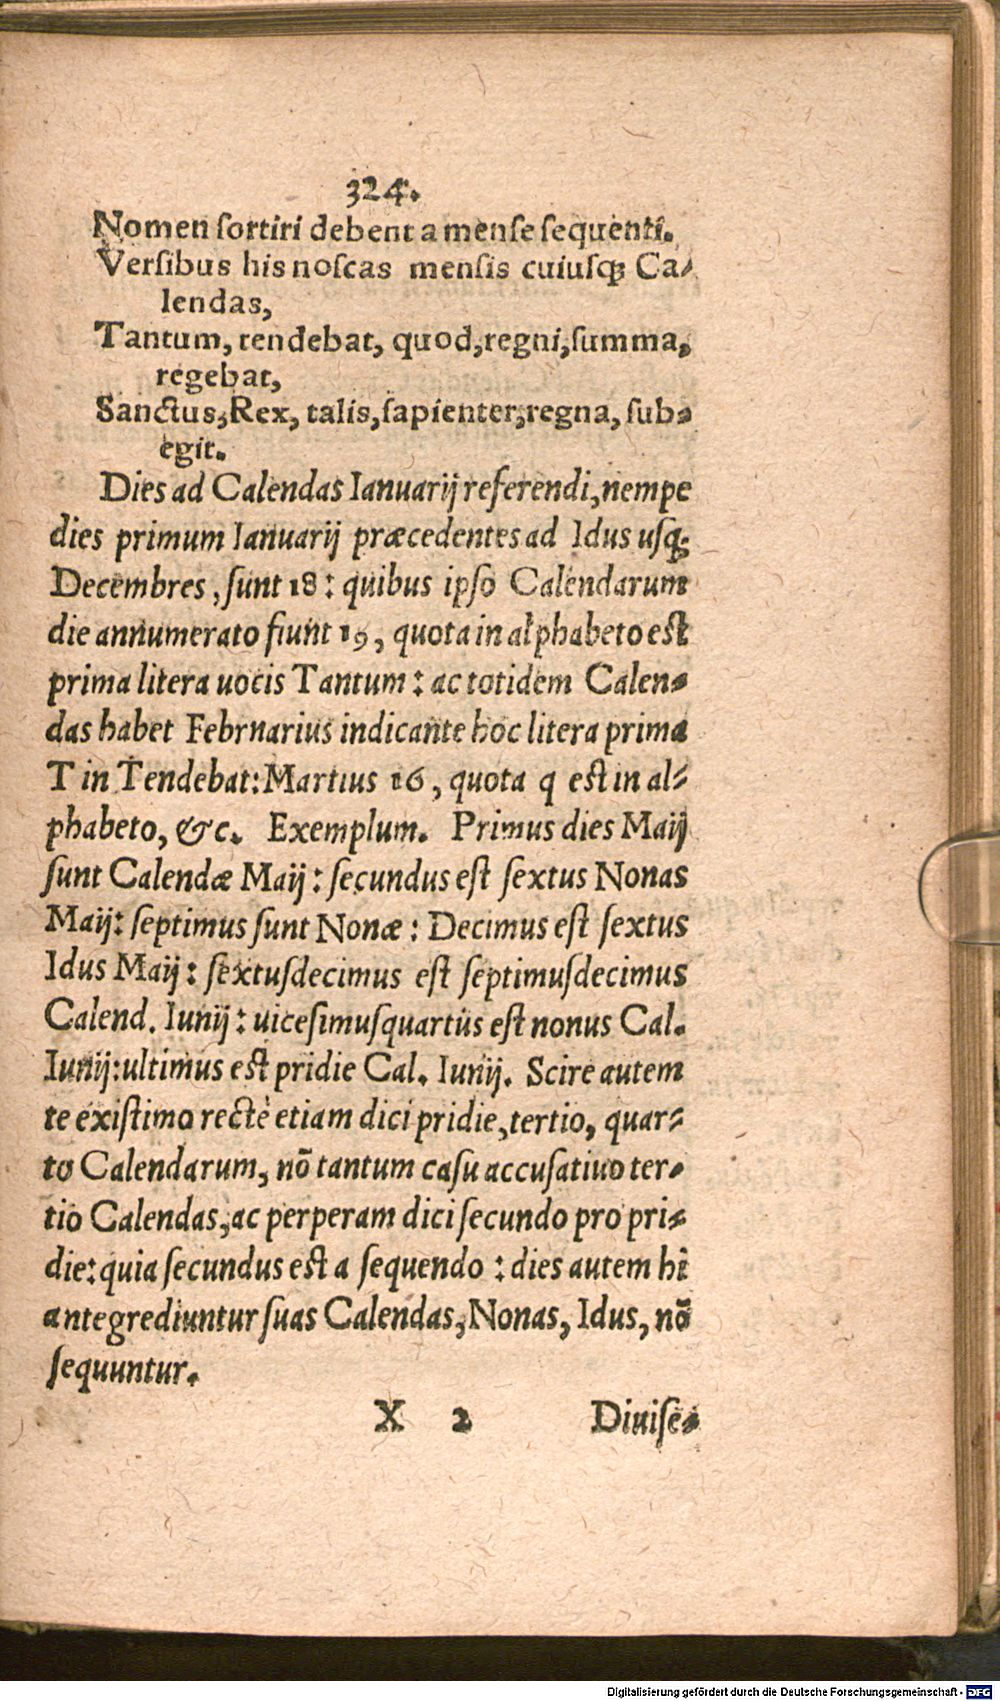 324.
Nomen sortiri debent a mense sequenti.
Versibus his noscas mensis cuiusq; Ca-
lendas,
Tantum, tendebat, quod, regni, summa,
regebat,
Sanctus, Rex, talis, sapienter, regna, sub-
egit.
Dies ad Calendas Ianuarij referendi, nempe
dies primum Ianuarij præcedentes ad Idus usq;
Decembres, sunt 18: quibus ipso Calendarum
die annumerato fiunt 19, quota in alphabeto est
prima litera uocis Tantum: ac totidem Calen-
das habet Febrnarius indicante hoc litera prima
T in Tendebat: Martius 16, quota q est in al-
phabeto, &c. Exemplum. Primus dies Maij
sunt Calendæ Maij: secundus est sextus Nonas
Maij: septimus sunt Nonæ: Decimus est sextus
Idus Maij: sextusdecimus est septimusdecimus
Calend. Iunij: uicesimusquartus est nonus Cal.
Iunij: ultimus est pridie Cal. Iunij. Scire autem
te existimo rectè etiam dici pridie, tertio, quar-
to Calendarum, nō tantum casu accusatiuo ter-
tio Calendas, ac perperam dici secundo pro pri-
die: quia secundus est a sequendo: dies autem hi
antegrediuntur suas Calendas, Nonas, Idus, nō
sequuntur.
X 2 Diuise-
Digitalisierung gefördert durch die Deutsche Forschungsgemeinschaft - DFG